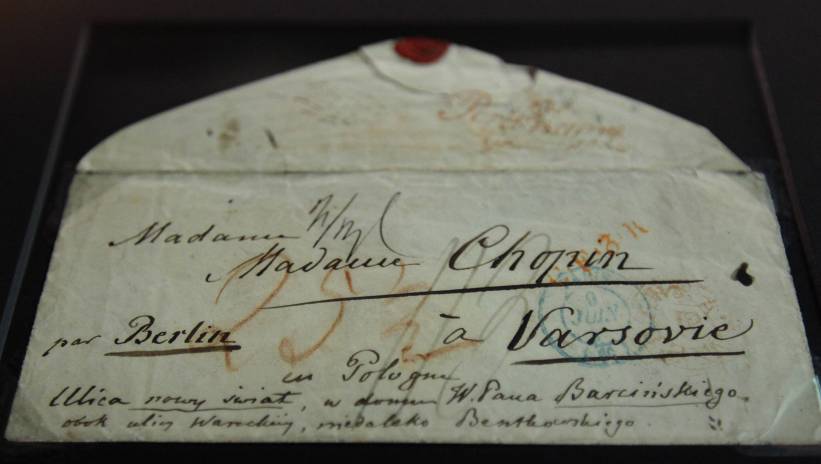 Madame
Madame Chopin
par Berlin
à Varsovie
en Pologne
Ulica nowy świat, w domu W. Pana Barcińskiego.
obok ulicy Wareckiej, niedaleko Bentkowskiego.
9
JUIN